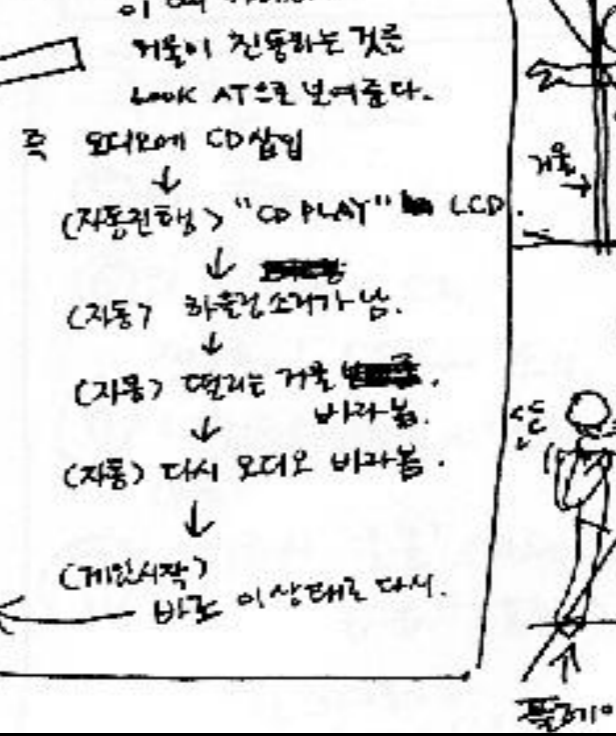 이
거울이 진동하는 것을
LOOK AT으로 보여준다.
즉 오디오에 CD삽입
↓
(자동진행) "CD PLAY" LCD.
↓
(자동) 하울링소리가 남.
↓
(자동) 떨리는 거울
바라봄.
↓
(자동) 다시 오디오 바라봄.
↓
(게임시작)
바로 이 상태로 다시.
거울
→
↑
플레이